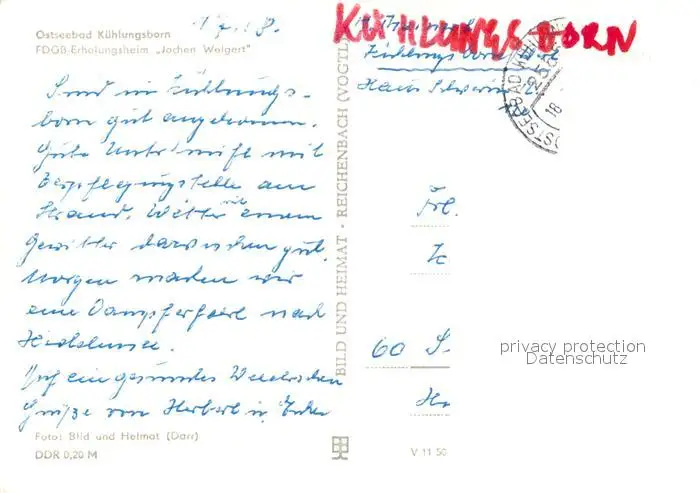 Ostseebad Kühlungsborn
FDGB-Erholungsheim „Jochen Weigert"
17. 8.
KÜHLUNGSBORN
Sind in Kühlungs-
born gut angekommen.
Gute Unterkunft mit
Verpflegungstelle am
Strand. Wetter mit einem
Gewitter dazwischen gut.
Morgen machen wir
eine Dampferfahrt nach
Hiddensee.
Auf ein gesundes Wiedersehen
Grüße von Herbert u.
Foto: Bild und Heimat (Darr)
DDR 0,20 M
BILD UND HEIMAT · REICHENBACH (VOGTL
Kühlungsborn
Haus
OSTSEEBAD
18
Frl.
60 S
V 11 50
privacy protection
Datenschutz